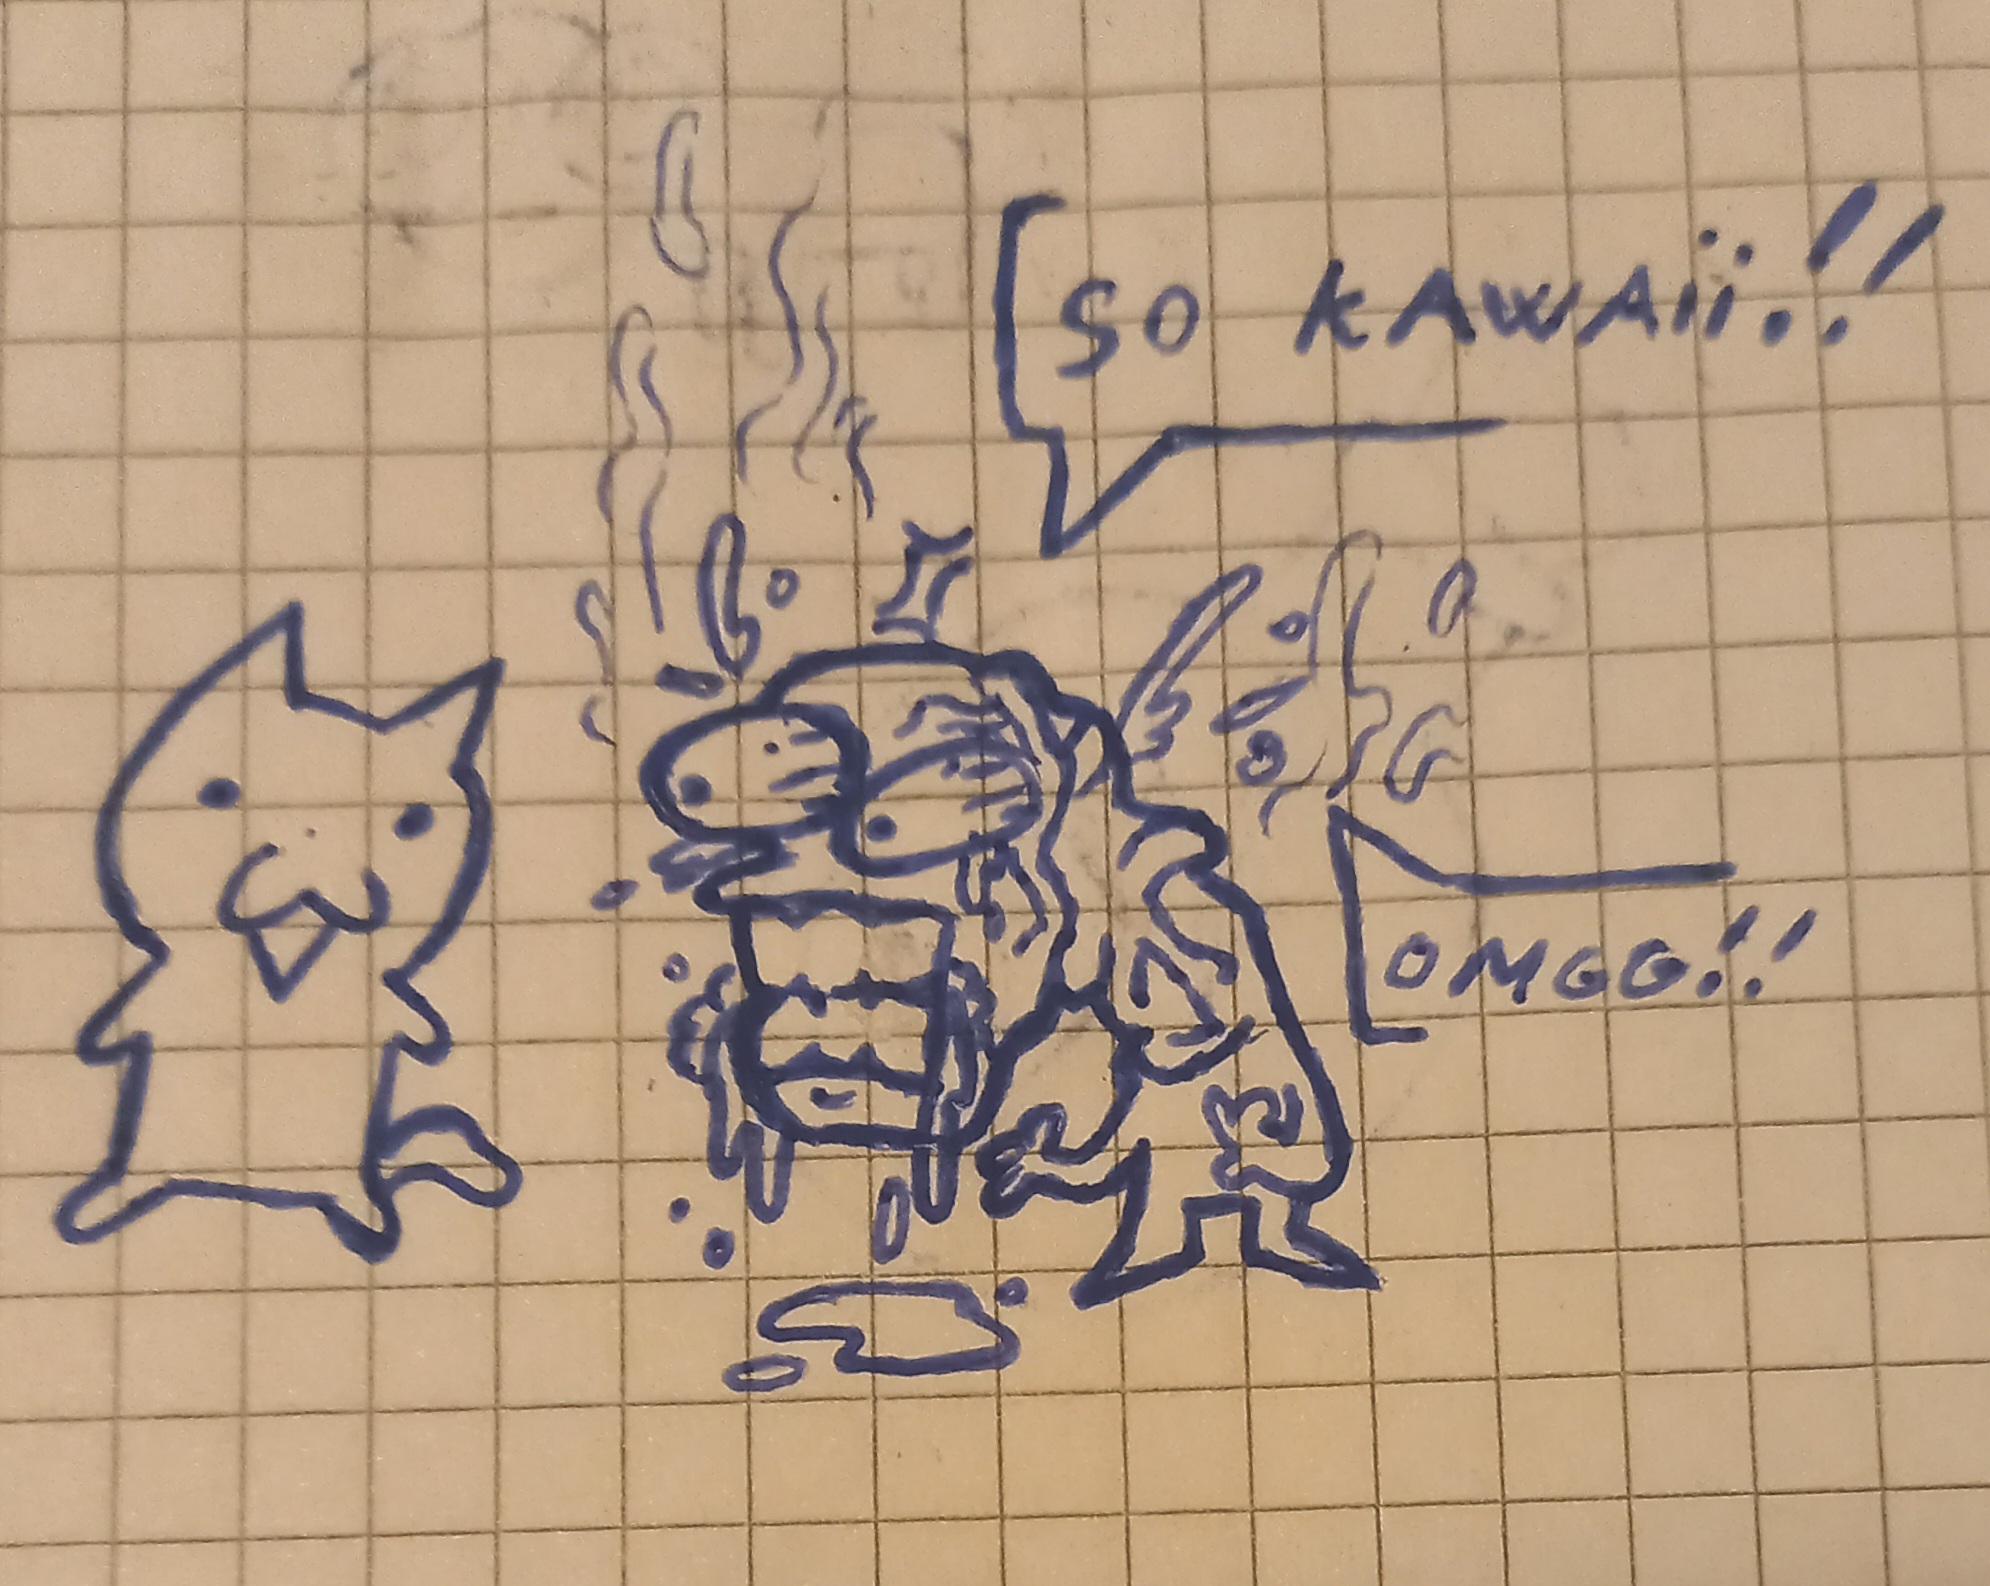 SO KAWAii!!
OMGG!!